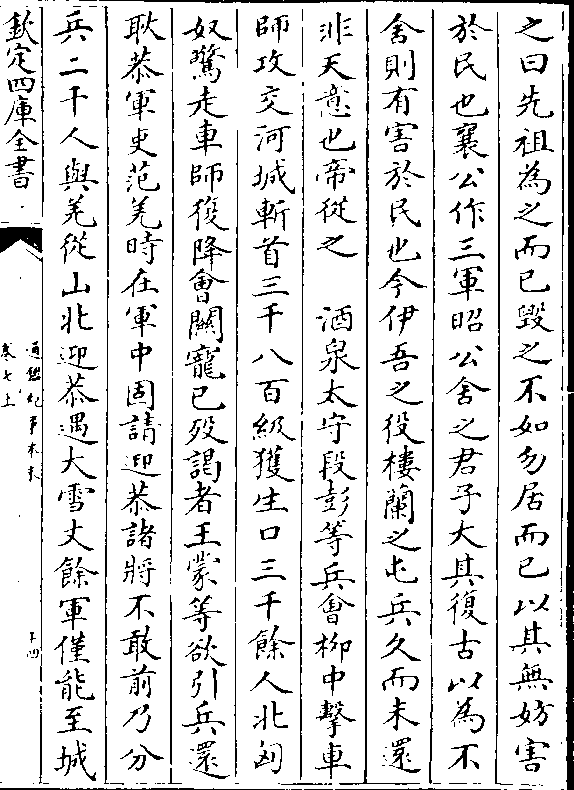 之曰先祖為之而已毀之不如勿居而已以其無妨害
於民也襄公作三軍昭公舍之君子大其復古以為不
舍則有害於民也今伊吾之役樓蘭之屯兵久而未還
非天意也帝從之　酒泉太守段彭等兵會柳中擊車
師攻交河城斬首三千八百級獲生口三千餘人北匈
奴驚走車師復降會關寵已歿謁者王蒙等欲引兵還
耿恭軍吏范羌時在軍中固請迎恭諸將不敢前乃分
兵二千人與羌從山北迎恭遇大雪丈餘軍僅能至城
欽定四庫全書
通鑑紀事本末
卷七上
十四